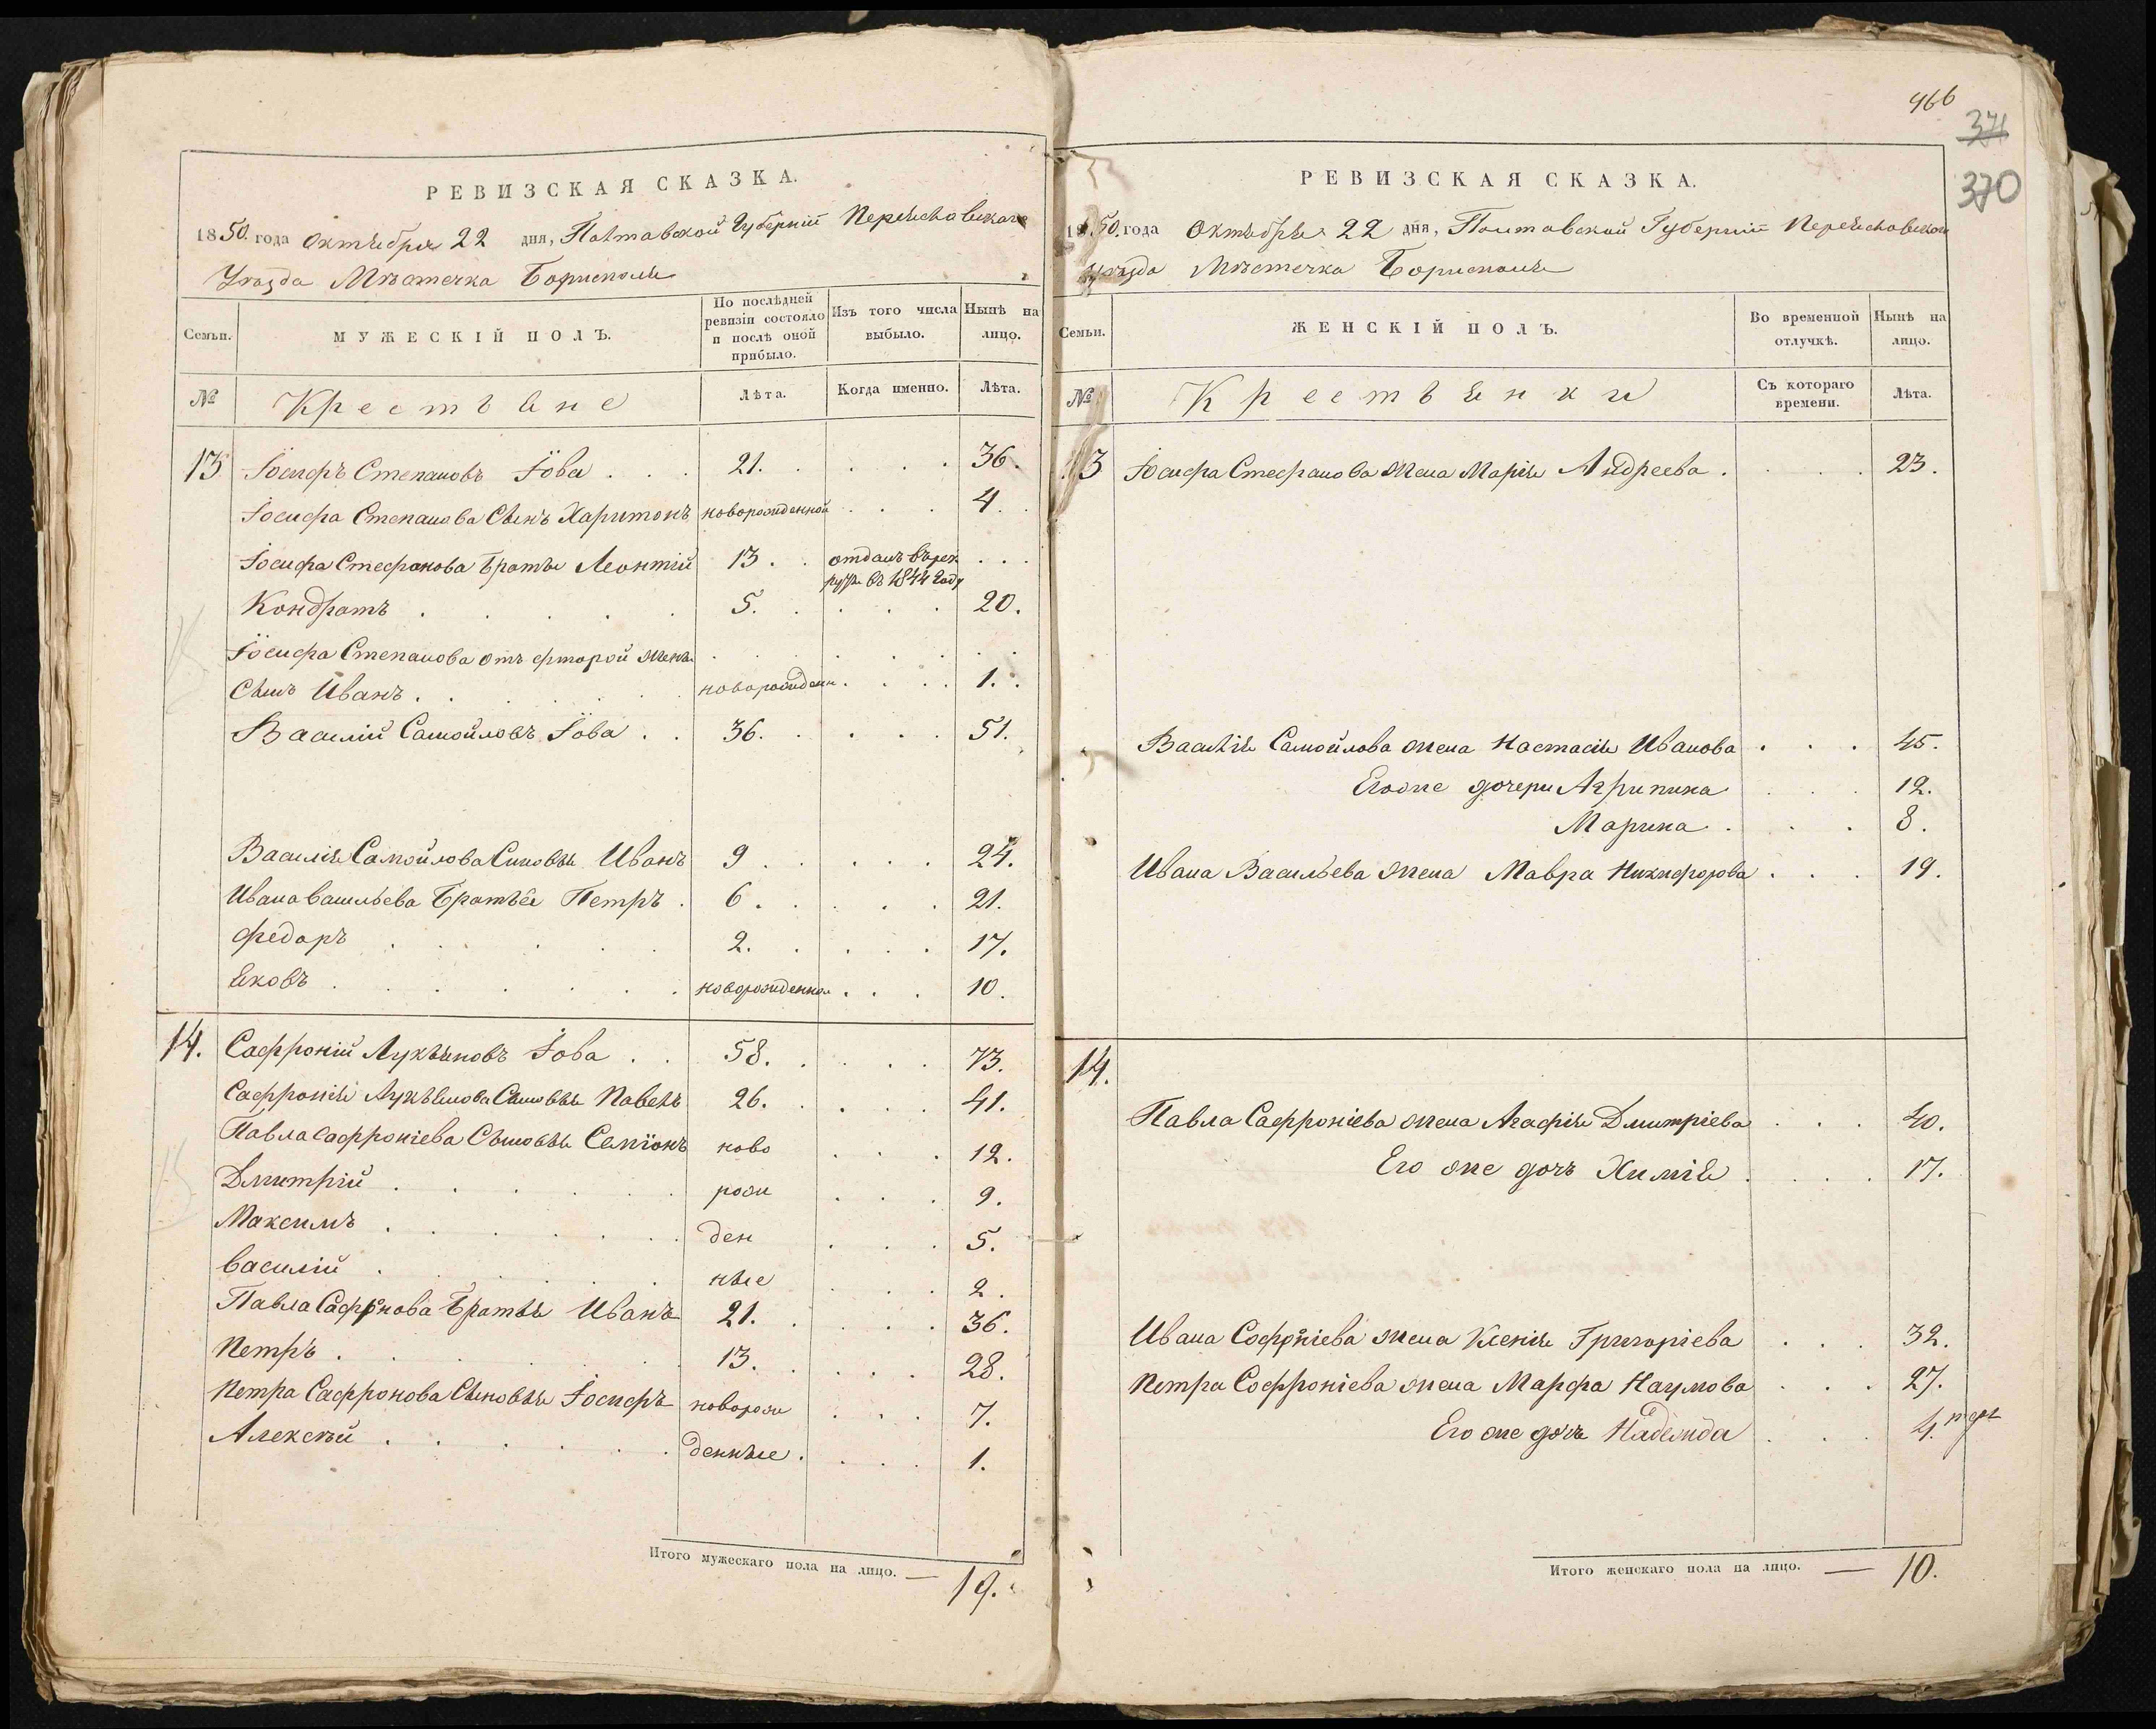 РЕВИЗСКАЯ СКАЗКА.
1850. года Октября 22 дня, Полтавской Губерніи Переясловскаго
Уѣзда Мѣстечка Борисполя
Семьи.
МУЖЕСКІЙ ПОЛЪ.
По послѣдней ревизіи состояло и послѣ оной прибыло.
Изъ того числа выбыло.
Нынѣ на лицо.
№
Крестьяне
Лѣта.
Когда именно.
Лѣта.
13 Іосифъ Степановъ Іова . . . 21. . . . . . 36.
Іосифа Степанова Сынъ Харитонъ новорожденной . . . 4.
Іосифа Стефанова Братья Леонтій 13. . отданъ въ рек . . .
руты въ 1844 году
Кондратъ . . . . . 5. . . . . 20.
Іосифа Степанова отъ фторой жены
Сынъ Иванъ . . . . новорожденн . . . . 1.
Василій Самойловъ Іова . . 36. . . . . . 51.
Василія Самойлова Сыновья Иванъ 9 . . . . . 24.
Ивана васильева Братья Петръ . 6 . . . . . 21.
Федоръ . . . . . 2. . . . . 17.
Яковъ . . . . . . новорожденной . . . 10.
14. Саффоній Лукъяновъ Іова . . 58. . . . . 73.
Саффонія Лукъянова Сыновья Павелъ 26. . . . . 41.
Павла саффроніева Сыновья Семіонъ ново . . . 12.
Дмитрій . . . . . . рож . . . 9.
Максимъ . . . . . . ден . . . 5.
василій . . . . . . ные . . . 2.
Павла Сафронова Братья Иванъ 21. . . . . 36.
Петръ . . . . . . 13. . . . . 28.
Петра Саффронова Сыновья Іосифъ новорож . . . 7.
Алексѣй . . . . . . денные . . . . 1.
Итого мужескаго пола на лицо. — 19.
466
371
370
РЕВИЗСКАЯ СКАЗКА.
1850. года Октября 22 дня, Полтавской Губерніи Переясловскаго
Уѣзда Мѣстечка Борисполя
Семьи.
ЖЕНСКІЙ ПОЛЪ.
Во временной отлучкѣ.
Нынѣ на лицо.
№
Крестьянки
Съ котораго времени.
Лѣта.
13 Іосифа Стефанова жена Марія Андреева . . . . 23.
Василія Самойлова жена Настасія Иванова . . . 45.
Егоже дочери Агрипина . . . 12.
Марина . . . 8.
Ивана Васильева жена Мавра Никифорова . . . 19.
14.
Павла Саффроніева жена Агафія Дмитріева . . . 40.
Его же дочь Химія . . . . 17.
Ивана Софроніева жена Ксенія Григоріева . . . 32.
Петра Соффроніева жена Марфа Наумова . . . 27.
Его же дочь Надежда . . . 4.
Итого женскаго пола на лицо. — 10.